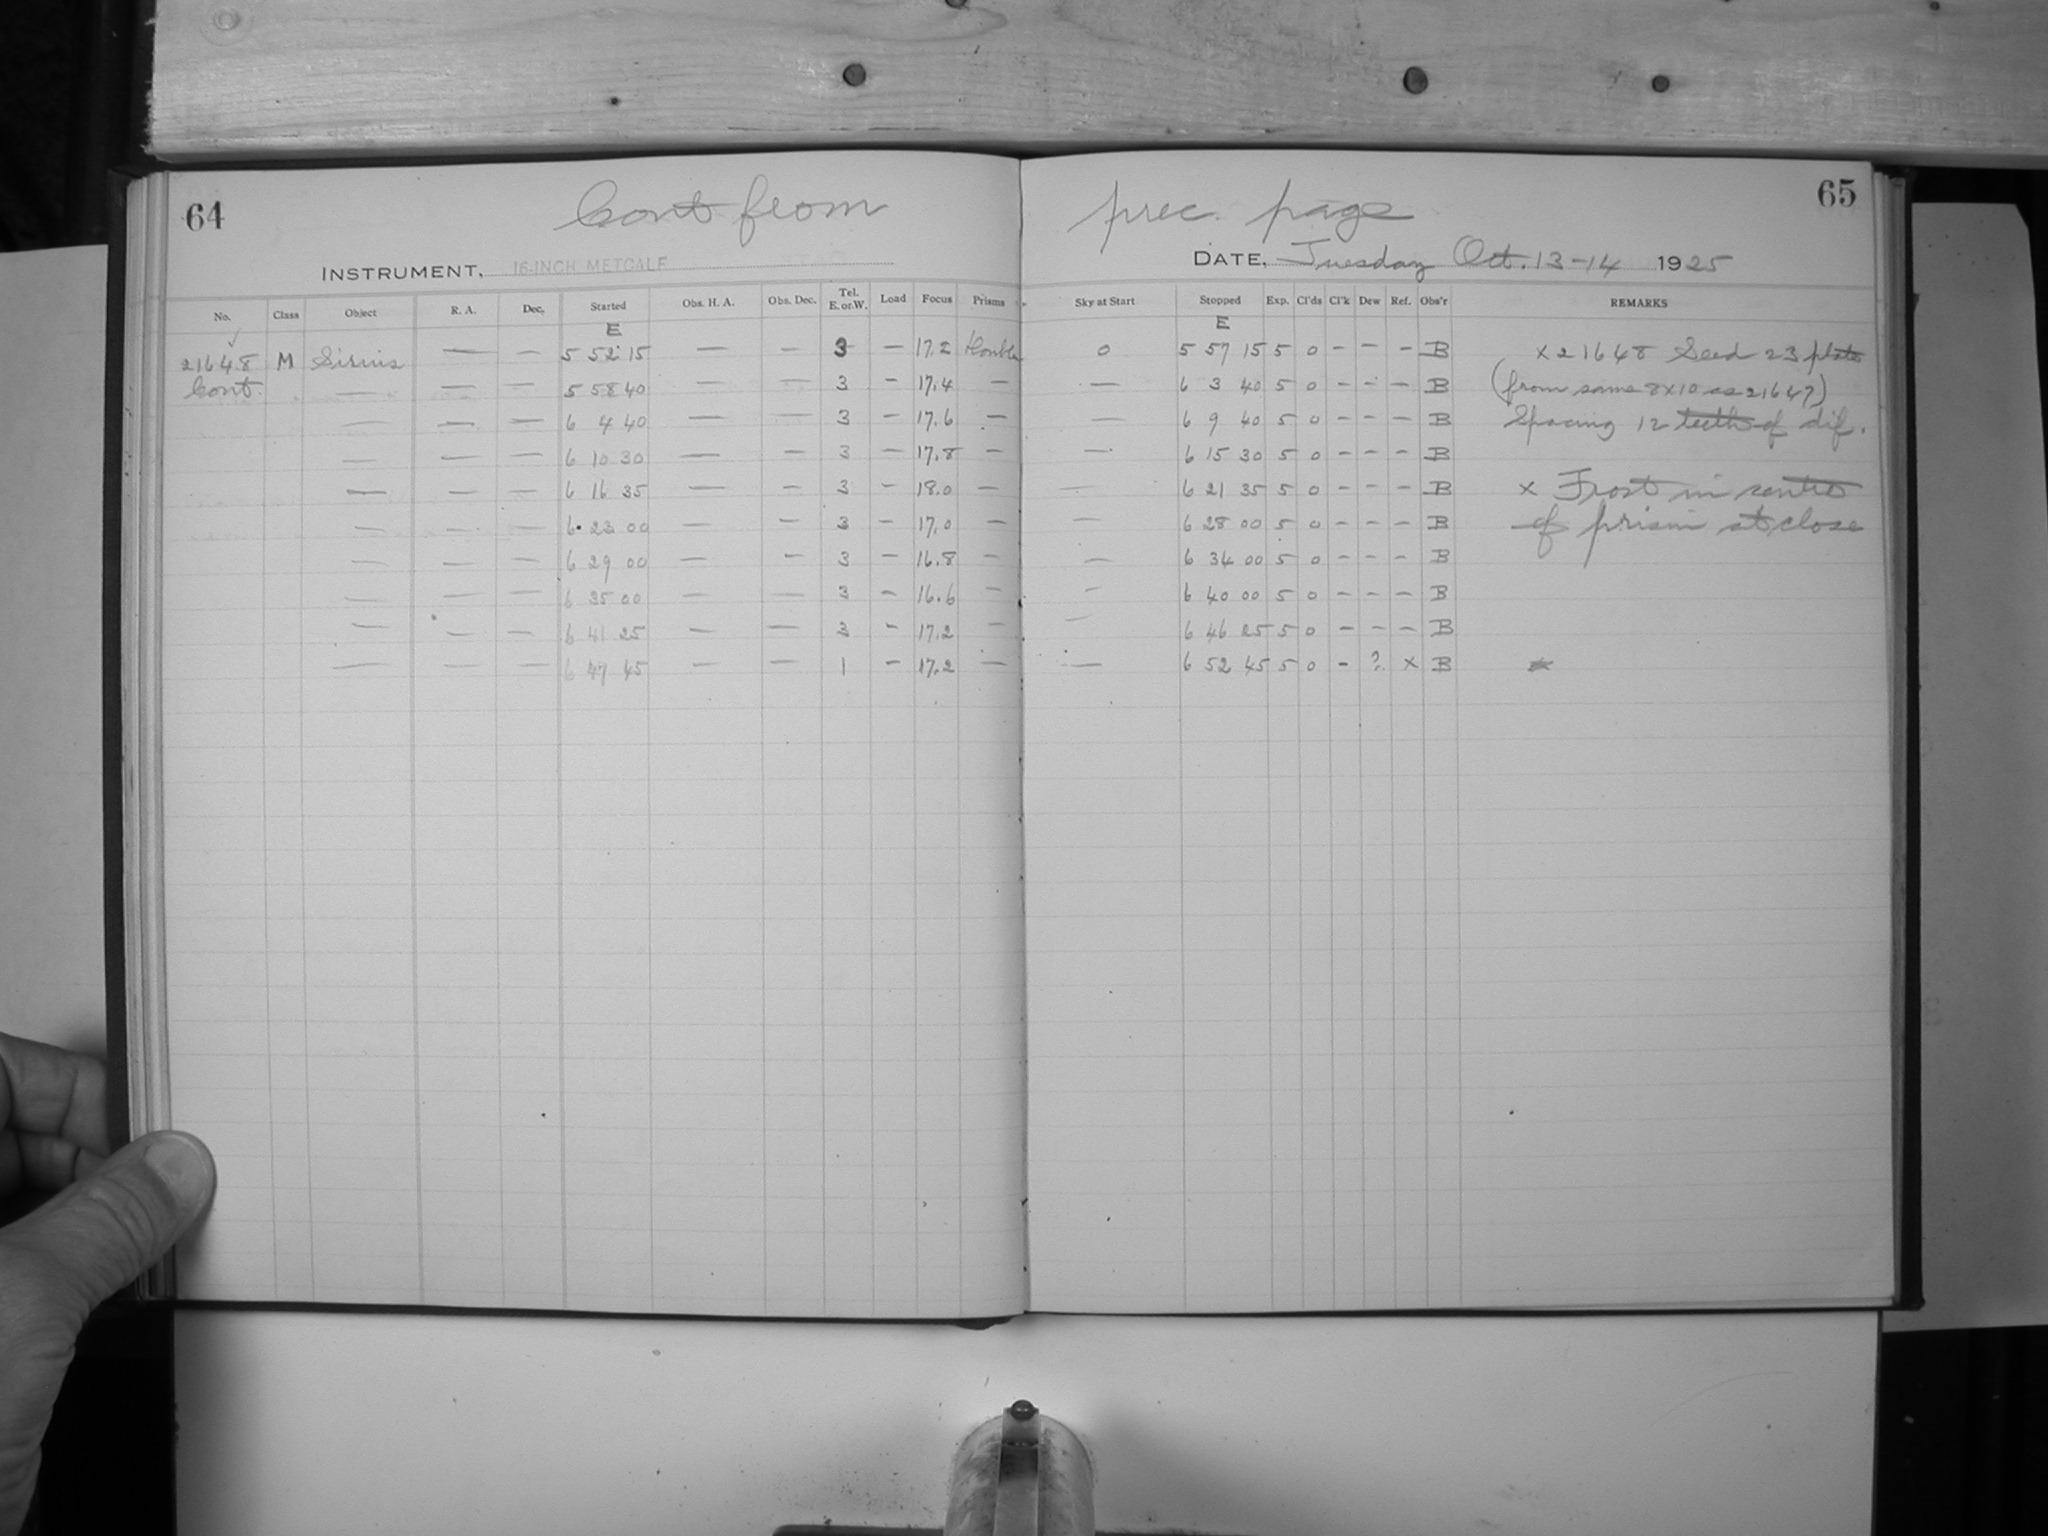 64
Cont from
prec. page
65
INSTRUMENT, 16-INCH METCALF
DATE, Tuesday Oct. 13-14 1925
No. Class Object R. A. Dec. Started Obs. H. A. Obs. Dec. Tel. E. or W. Load Focus Prisms Sky at Start Stopped Exp. Cl'ds Cl'k Dew Ref. Obs'r REMARKS
E E
21648 M Sirius — — 5 52 15 — — 3 — 17.2 Double 0 5 57 15 5 0 - - - B x 21648 Seed 23 plate
Cont. — — — 5 58 40 — — 3 - 17.4 — — 6 3 40 5 0 - - - B (from same 8x10 as 21647)
— — — 6 4 40 — — 3 — 17.6 — — 6 9 40 5 0 - - - B Spacing 12 teeth of dif.
— — — 6 10 30 — — 3 — 17.8 — — 6 15 30 5 0 - - - B
— — — 6 16 35 — — 3 - 18.0 — — 6 21 35 5 0 - - - B x Frost in centre
— — — 6 23 00 — — 3 — 17.0 — — 6 28 00 5 0 - - - B of prism at close
— — — 6 29 00 — — 3 — 16.8 — — 6 34 00 5 0 - - - B
— — — 6 35 00 — — 3 - 16.6 — — 6 40 00 5 0 - - - B
— — — 6 41 25 — — 3 - 17.2 — — 6 46 25 5 0 - - - B
— — — 6 47 45 — — 1 - 17.2 — — 6 52 45 5 0 - ? x B